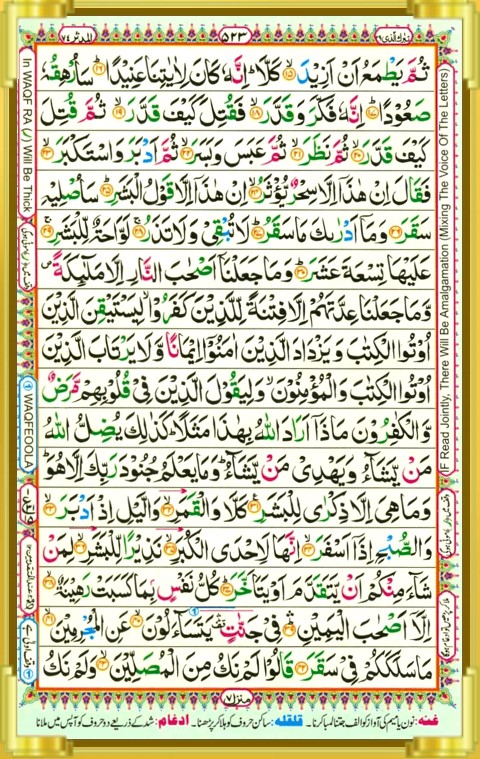 تبٰرك الذی ٢٩
٥٢٣
المدثر ٧٤
ثُمَّ يَطْمَعُ اَنْ اَزِيْدَ ۙ١٥ كَلَّا ؕ اِنَّهٗ كَانَ لِاٰيٰتِنَا عَنِيْدًا ؕ١٦ سَاُرْهِقُهٗ
صَعُوْدًا ؕ١٧ اِنَّهٗ فَكَّرَ وَقَدَّرَ ۙ١٨ فَقُتِلَ كَيْفَ قَدَّرَ ۙ١٩ ثُمَّ قُتِلَ
كَيْفَ قَدَّرَ ۙ٢٠ ثُمَّ نَظَرَ ۙ٢١ ثُمَّ عَبَسَ وَبَسَرَ ۙ٢٢ ثُمَّ اَدْبَرَ وَاسْتَكْبَرَ ۙ٢٣
فَقَالَ اِنْ هٰذَاۤ اِلَّا سِحْرٌ يُّؤْثَرُ ۙ٢٤ اِنْ هٰذَاۤ اِلَّا قَوْلُ الْبَشَرِ ؕ٢٥ سَاُصْلِيْهِ
سَقَرَ ٢٦ وَمَاۤ اَدْرٰىكَ مَا سَقَرُ ؕ٢٧ لَا تُبْقِيْ وَلَا تَذَرُ ۚ٢٨ لَوَّاحَةٌ لِّلْبَشَرِ ۖ٢٩
عَلَيْهَا تِسْعَةَ عَشَرَ ؕ٣٠ وَمَا جَعَلْنَاۤ اَصْحٰبَ النَّارِ اِلَّا مَلٰٓئِكَةً ۪
وَّمَا جَعَلْنَا عِدَّتَهُمْ اِلَّا فِتْنَةً لِّلَّذِيْنَ كَفَرُوْا ۙ لِيَسْتَيْقِنَ الَّذِيْنَ
اُوْتُوا الْكِتٰبَ وَيَزْدَادَ الَّذِيْنَ اٰمَنُوْۤا اِيْمَانًا وَّلَا يَرْتَابَ الَّذِيْنَ
اُوْتُوا الْكِتٰبَ وَالْمُؤْمِنُوْنَ ۙ وَلِيَقُوْلَ الَّذِيْنَ فِيْ قُلُوْبِهِمْ مَّرَضٌ
وَّالْكٰفِرُوْنَ مَاذَاۤ اَرَادَ اللّٰهُ بِهٰذَا مَثَلًا ؕ كَذٰلِكَ يُضِلُّ اللّٰهُ
مَنْ يَّشَآءُ وَيَهْدِيْ مَنْ يَّشَآءُ ؕ وَمَا يَعْلَمُ جُنُوْدَ رَبِّكَ اِلَّا هُوَ ؕ
وَمَا هِيَ اِلَّا ذِكْرٰى لِلْبَشَرِ ٣١ كَلَّا وَالْقَمَرِ ۙ٣٢ وَالَّيْلِ اِذْ اَدْبَرَ ۙ٣٣
وَالصُّبْحِ اِذَاۤ اَسْفَرَ ۙ٣٤ اِنَّهَا لَاِحْدَى الْكُبَرِ ۙ٣٥ نَذِيْرًا لِّلْبَشَرِ ۙ٣٦ لِمَنْ
شَآءَ مِنْكُمْ اَنْ يَّتَقَدَّمَ اَوْ يَتَاَخَّرَ ؕ٣٧ كُلُّ نَفْسٍۭ بِمَا كَسَبَتْ رَهِيْنَةٌ ۙ٣٨
اِلَّاۤ اَصْحٰبَ الْيَمِيْنِ ۛ٣٩ فِيْ جَنّٰتٍ ۛ يَتَسَآءَلُوْنَ ۙ٤٠ عَنِ الْمُجْرِمِيْنَ ۙ٤١
مَا سَلَكَكُمْ فِيْ سَقَرَ ٤٢ قَالُوْا لَمْ نَكُ مِنَ الْمُصَلِّيْنَ ۙ٤٣ وَلَمْ نَكُ
منزل ٧
غنه: نون یا میم کی آواز کو الف جتنا لمبا کرنا۔ قلقله: ساکن حروف کو ہلا کر پڑھنا۔ ادغام: شد کے ذریعے دو حروف کو آپس میں ملانا
In WAQF RA (ر) Will Be Thick
WAQFEOOLA
(IF Read Jointly, There Will Be Amalgamation (Mixing The Voice Of The Letters)